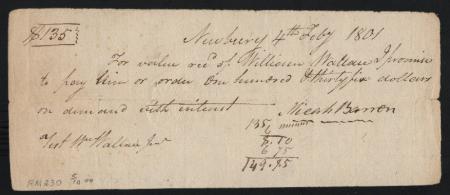 $135
Newbury 4th Feby 1801
For value recd of William Wallace I promise
to pay him or order one hundred & thirty five dollars
on demand with interest
Micah Barron
Test Wm Wallace Jnr
135
6
8.10
6 75
149.85
RM230